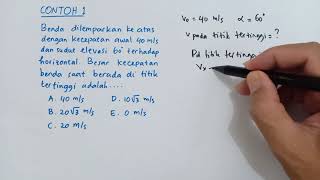 CONTOH 1
Benda dilemparkan ke atas
dengan kecepatan awal 40 m/s
dan sudut elevasi 60° terhadap
horizontal. Besar kecepatan
benda saat berada di titik
tertinggi adalah....
A. 40 m/s D. 10√3 m/s
B. 20√3 m/s E. 0 m/s
C. 20 m/s
v₀ = 40 m/s α = 60°
v pada titik tertinggi = ?
Pd titik tertingg
Vy